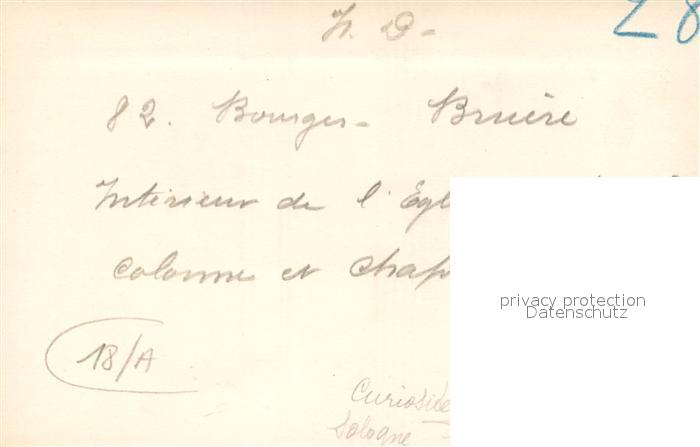 28
N. D-
82. Bourges- Bruère
Intérieur de l'Egl
colonne et chap
privacy protection
Datenschutz
18/A
Curiosité
Sologne -